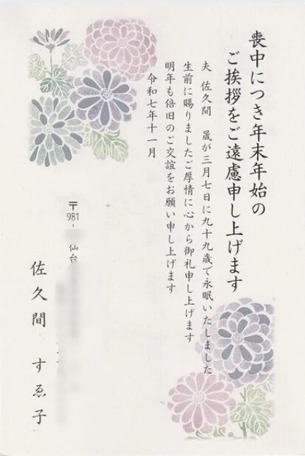 喪中につき年末年始の
ご挨拶をご遠慮申し上げます
夫 佐久間 晟が三月七日に九十九歳で永眠いたしました
生前に賜りましたご厚情に心から御礼申し上げます
明年も倍旧のご交誼をお願い申し上げます
令和七年十一月
〒981-
仙台
佐久間 すゑ子